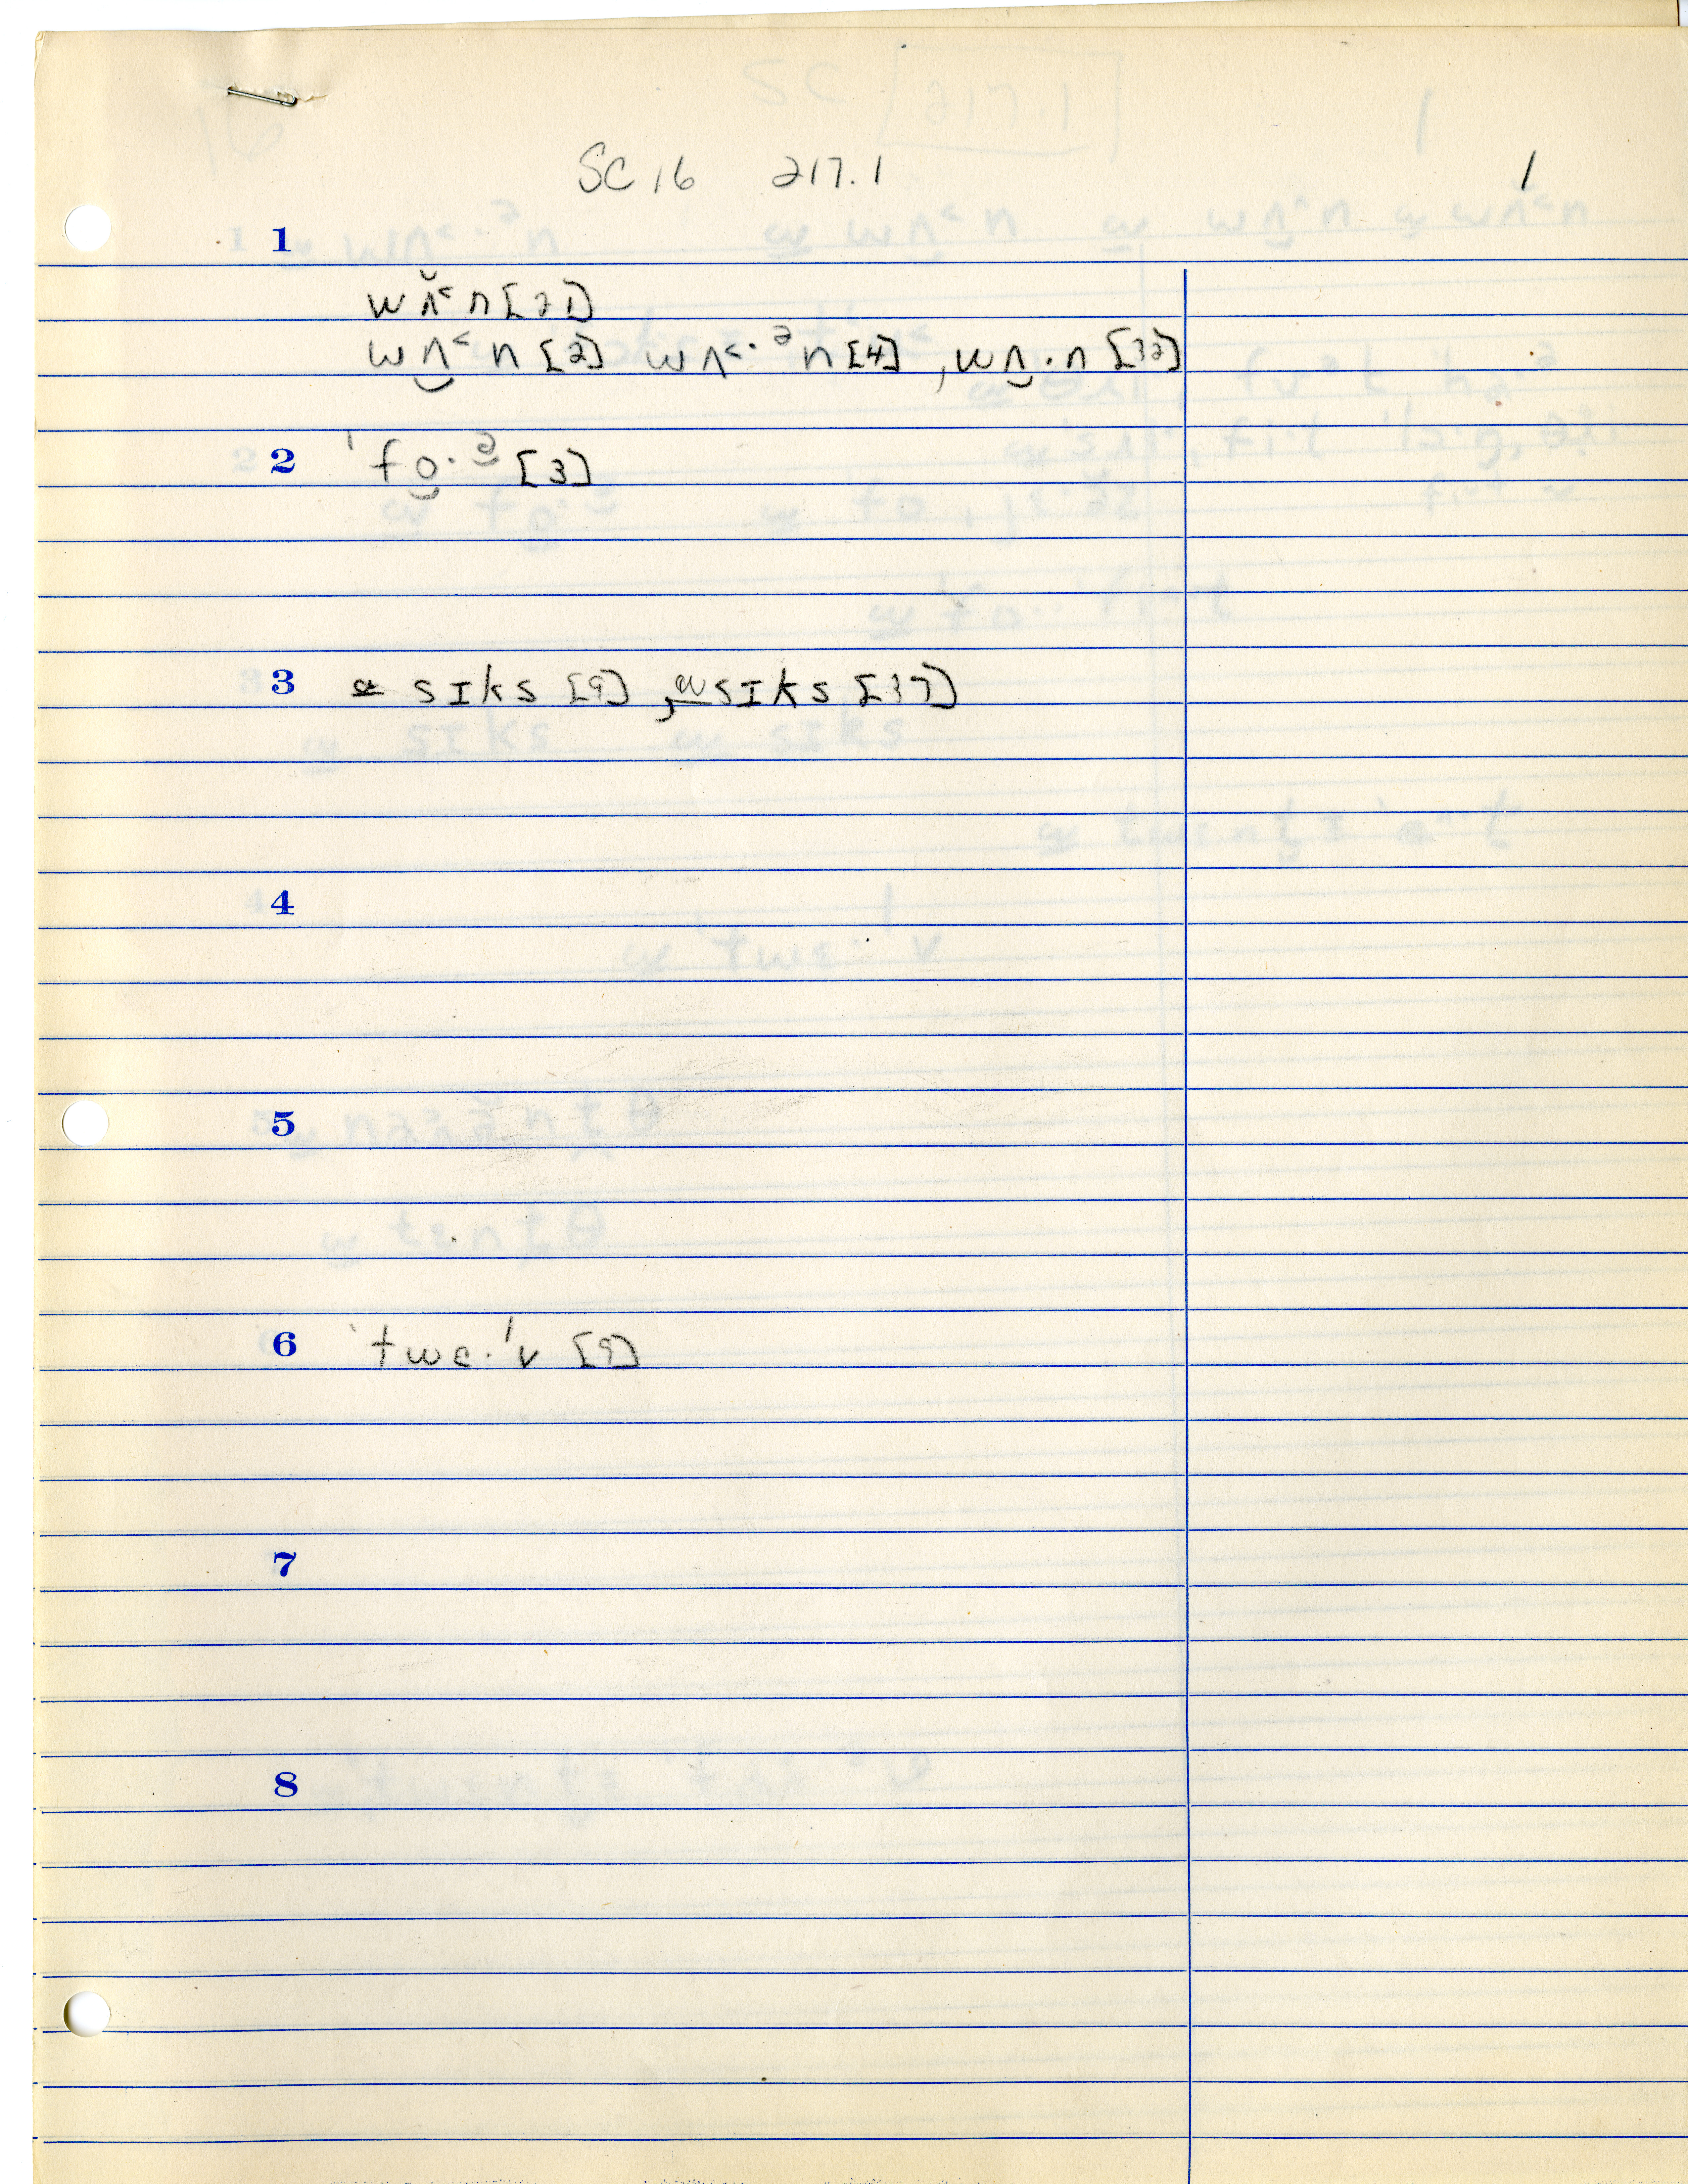 SC 16 217.1 1
1
wʌ̆˂n [21]
wʌ̮˂n [2] wʌ˂·ᵊn [4], wʌ̮·n [32]
2 ˈfo̮·ə̮ [3]
3 sɪks [9], sɪks [37]
4
5
6 ˈtwɛ·lv [9]
7
8